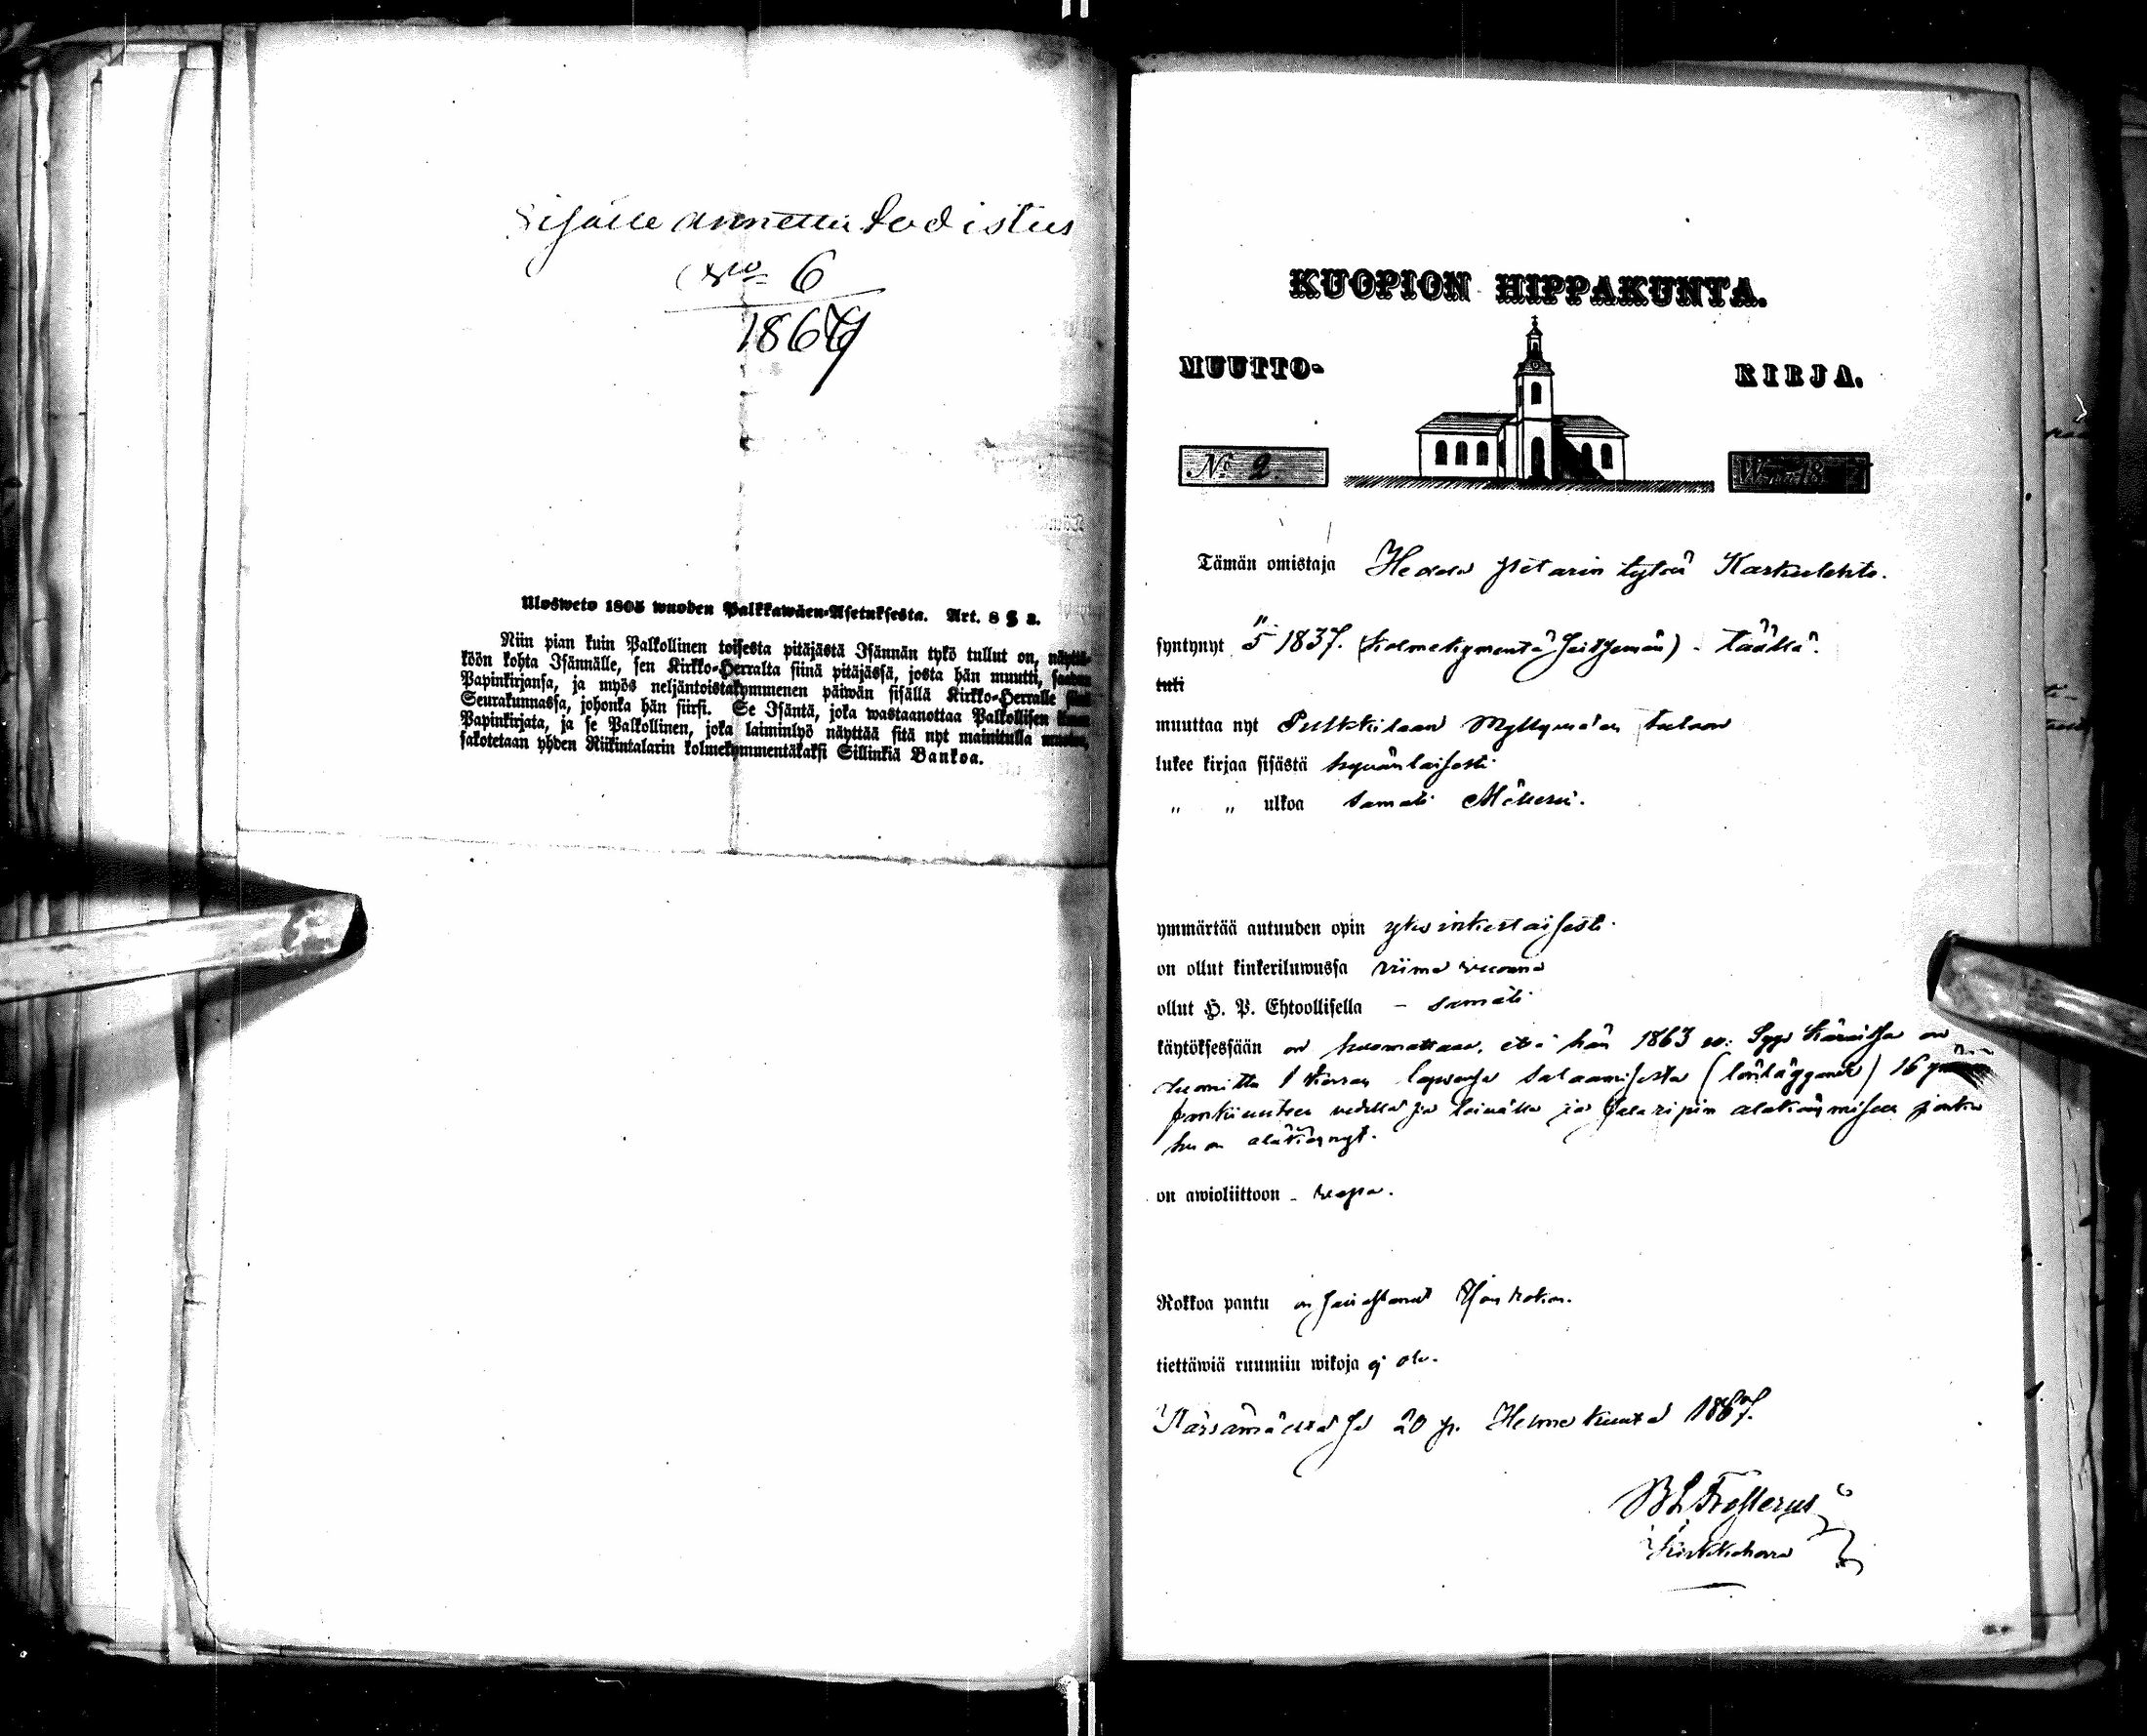 Sisälle annettu todistus
No 6
1867
Ulosweto 1805 wuoden Palkkawäen-Asetuksesta. Art. 8 § 2.
Niin pian kuin Palkollinen toisesta pitäjästä Isännän tykö tullut on, näyttä-
köön kohta Isännälle, sen Kirkko-Herralta siinä pitäjässä, josta hän muutti, saadun
Papinkirjansa, ja myös neljäntoistakymmenen päiwän sisällä Kirkko-Herralle siinä
Seurakunnassa, johonka hän siirsi. Se Isäntä, joka wastaanottaa Palkollisen ilman
Papinkirjata, ja se Palkollinen, joka laiminlyö näyttää sitä nyt mainitulla muotoa,
sakotetaan yhden Riikintalarin kolmekymmentäkaksi Sillinkiä Bankoa.
KUOPION HIPPAKUNTA.
MUUTTO- KIRJA.
No 2. W. 18
Tämän omistaja Hedda Pietarin tytär Karkulehto.
syntynyt 5 1837. (kolmekymmentä seitsemän) - täällä.
tuli
muuttaa nyt Pulkkilaan Myllymäen taloon
lukee kirjaa sisästä hywänlaisesti
" " ulkoa samati
ymmärtää autuuden opin yksinkertaisesti.
on ollut kinkeriluwussa wiime wuonna
ollut H. P. Ehtoollisella - samati
käytöksessään on huomattawa, että hän 1863 w: Syys Käräissä on
tuomittu 1 kerran lapsensa salaamisesta ( ) 16
wankiuteen wedellä ja leiwällä ja salaripin alakäymiseen jonka
hän on alakäynyt.
on awioliittoon - wapa.
Rokkoa pantu on sairastanut Ison rokon.
tiettäwiä ruumiin wikoja ej ole.
Kärsämäellä 20 p. Helme kuuta 1867.
B L Frosterus
Kirkkoherra